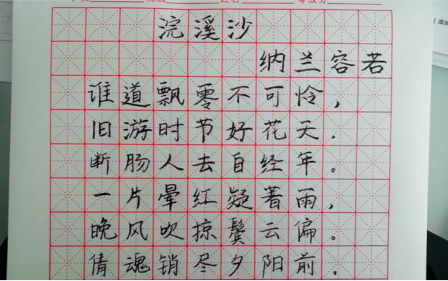 浣溪沙
纳兰容若
谁道飘零不可怜，
旧游时节好花天。
断肠人去自经年。
一片晕红疑著雨，
晚风吹掠鬓云偏。
倩魂销尽夕阳前。